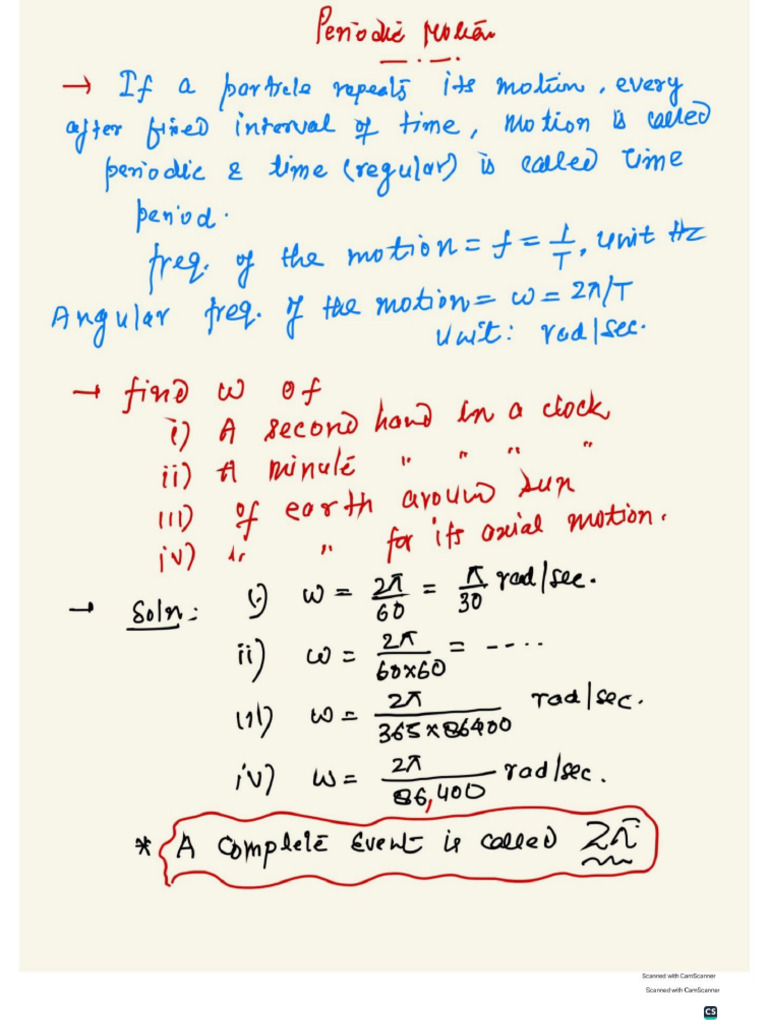 Periodic Motion
→ If a particle repeats its motion, every
after fixed interval of time, motion is called
periodic & time (regular) is called Time
period.
freq. of the motion = f = 1/T, unit Hz
Angular freq. of the motion = ω = 2π/T
Unit: rad/sec.
→ find ω of
i) A second hand in a clock
ii) A minute " " " "
iii) of earth around sun
iv) " " for its axial motion.
→ Soln: (i) ω = 2π/60 = π/30 rad/sec.
ii) ω = 2π/60×60 = ----
iii) ω = 2π/365×86400 rad/sec.
iv) ω = 2π/86,400 rad/sec.
* A complete event is called 2π
Scanned with CamScanner
Scanned with CamScanner
CS